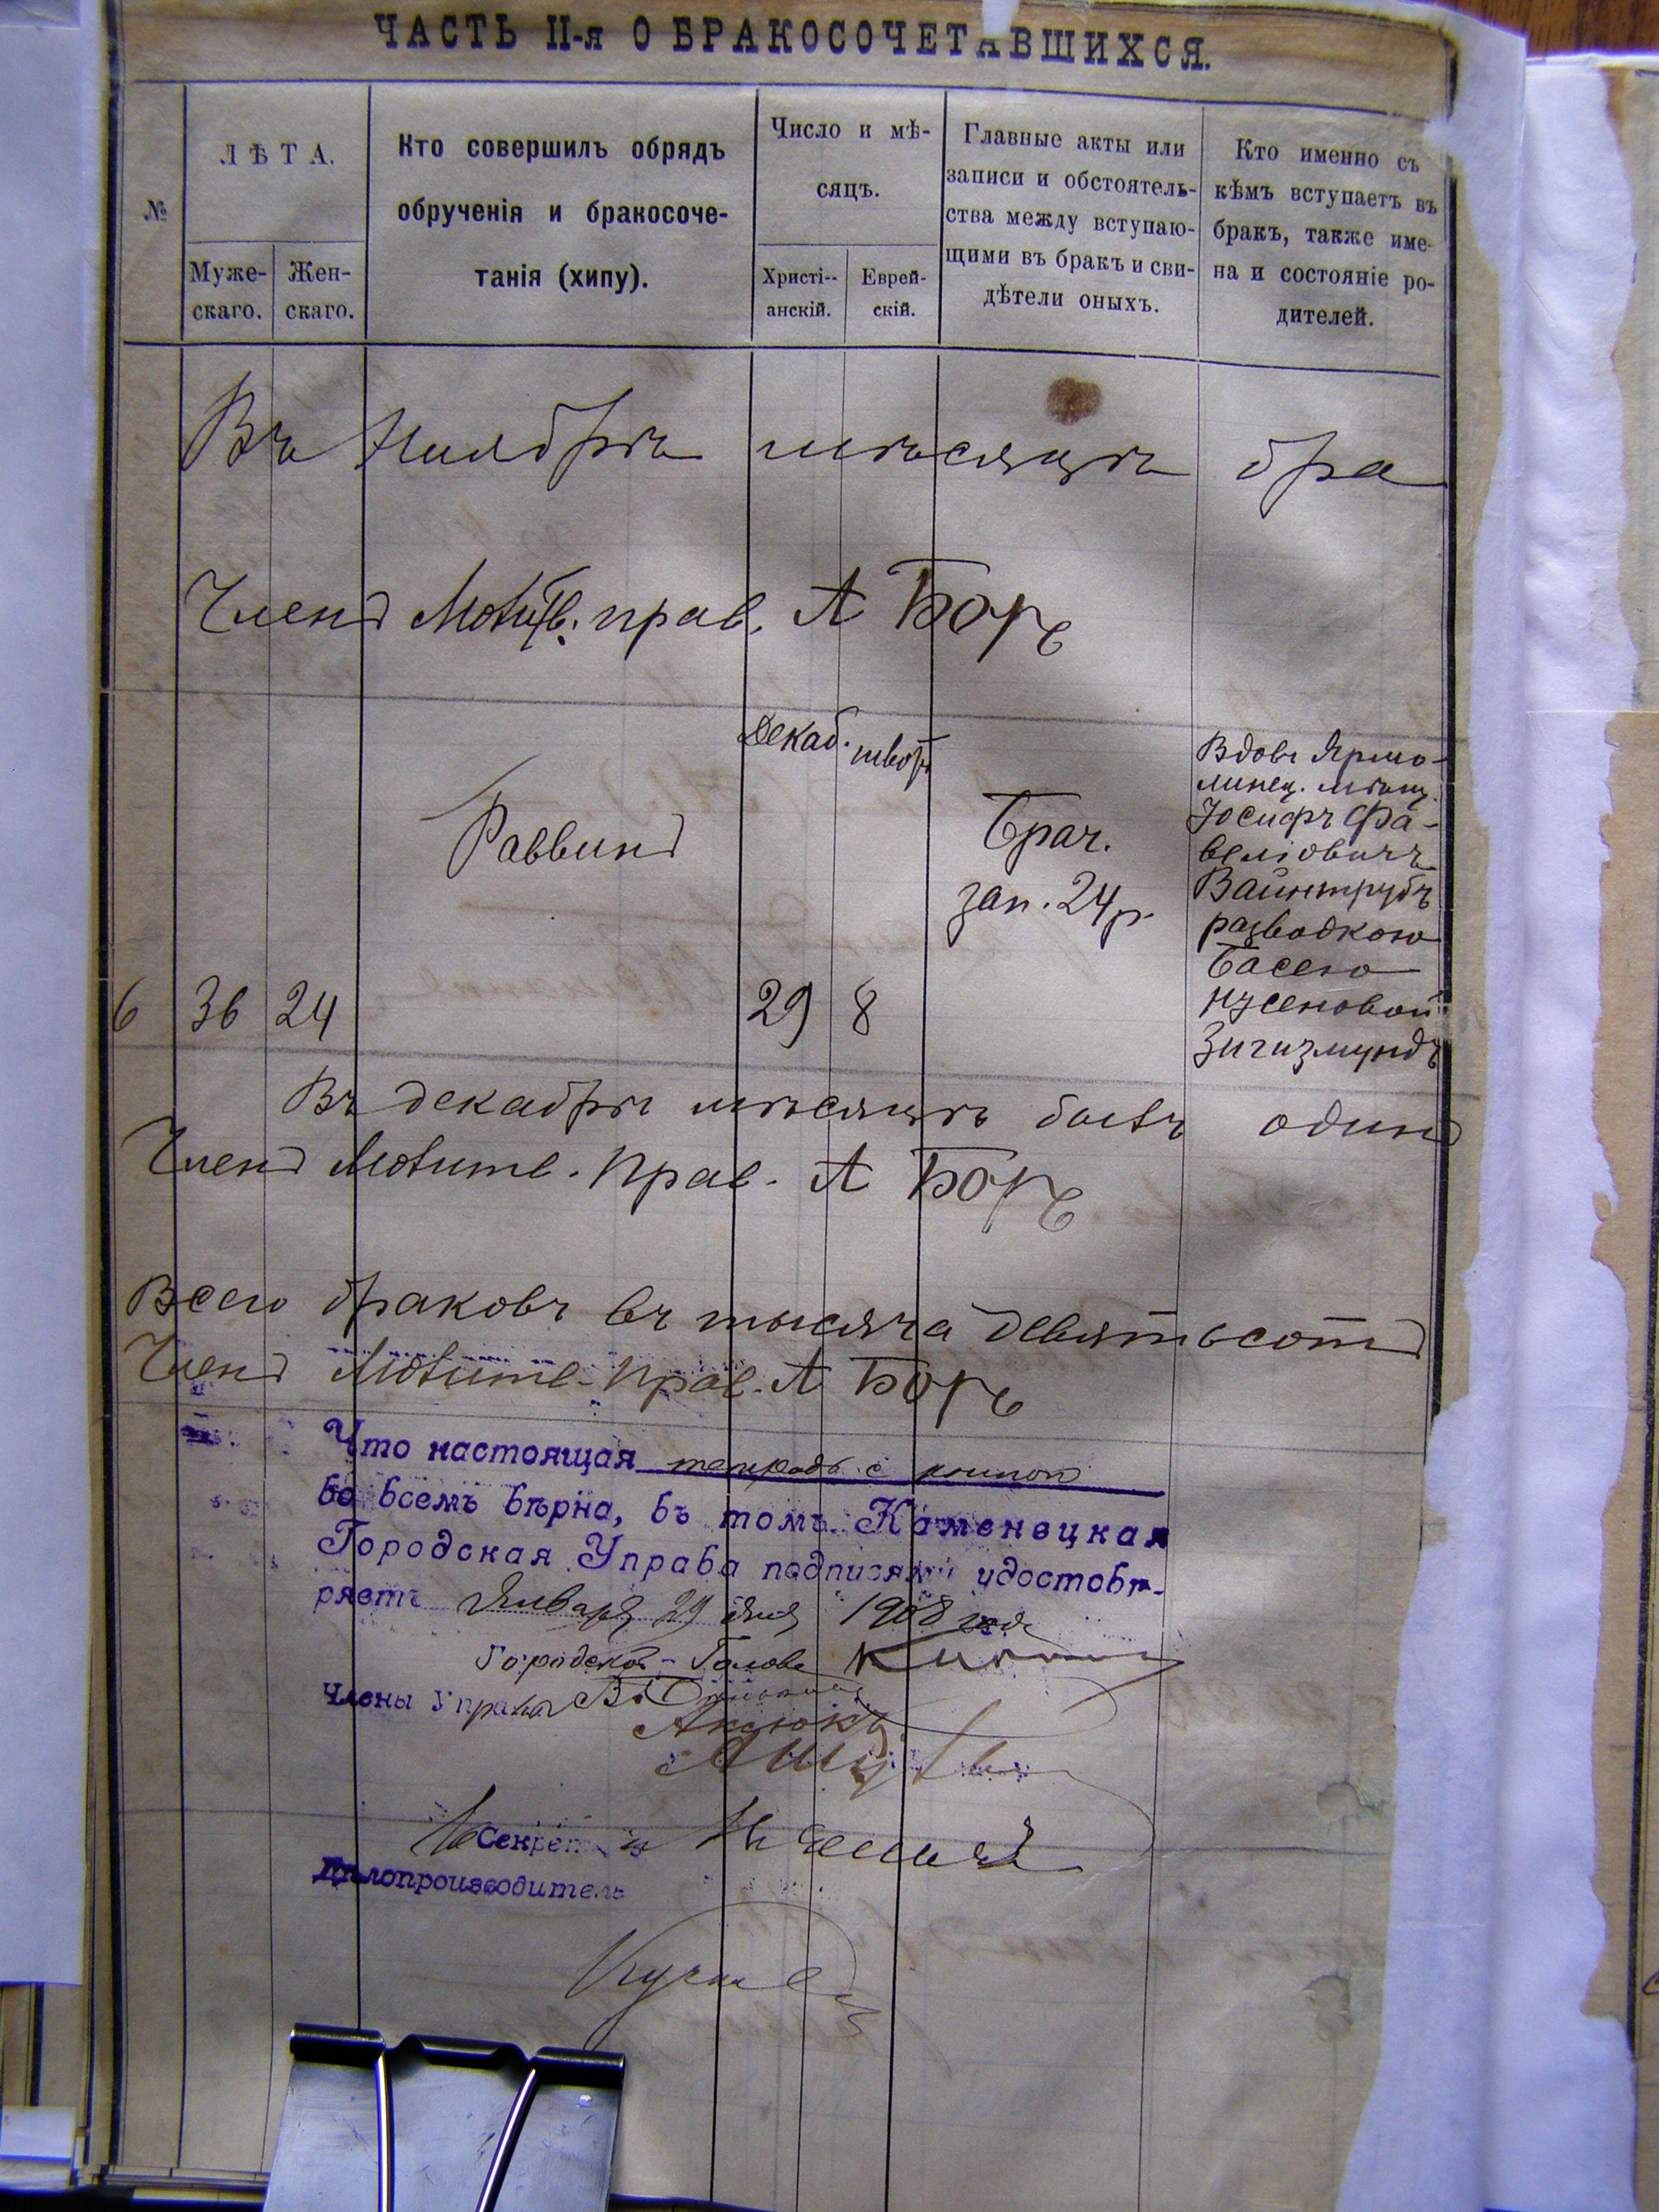 ЧАСТЬ II-я О БРАКОСОЧЕТАВШИХСЯ.
№
ЛѢТА.
Муже-
скаго.
Жен-
скаго.
Кто совершилъ обрядъ
обрученія и бракосоче-
танія (хипу).
Число и мѣ-
сяцъ.
Христі--
анскій.
Еврей-
скій.
Главные акты или
записи и обстоятель-
ства между вступаю-
щими въ бракъ и сви-
дѣтели оныхъ.
Кто именно съ
кѣмъ вступаетъ въ
бракъ, также име-
на и состояніе ро-
дителей.
Въ Ноябрѣ мѣсяцѣ бра
Членъ Молитв. прав. А Боръ
6
36
24
Раввинъ
Декаб.
29
8
Брач.
зап. 24 р.
Вдовъ Ярмо-
линец. мѣщ.
Іосифъ Фа-
веліовичъ
Вайнтрубъ
разводкою
Басею
Нусеновой
Зигизмундъ
Въ декабрѣ мѣсяцѣ былъ одинъ
Членъ Молитв. Прав. А Боръ
Всего браковъ въ тысяча девятьсотъ
Членъ Молитв. Прав. А Боръ
Что настоящая тетрадь с
во всемъ вѣрна, въ томъ Каменецкая
Городская Управа подписями удостовѣ-
ряетъ Января 29 дня 1908 года
Городской Голова
Члены Управы
Секрет
Дѣлопроизводитель